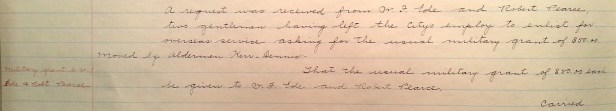 A request was received from W. F. Ide and Robert Pearce,
two gentlemen having left the City's employ to enlist for
overseas service asking for the usual military grant of $50.00
Moved by Alderman Kerr-Dennis
Military grant to W. That the usual military grant of $50.00 each
Ide & Robt Pearce. be given to W. F. Ide and Robert Pearce.
Carried